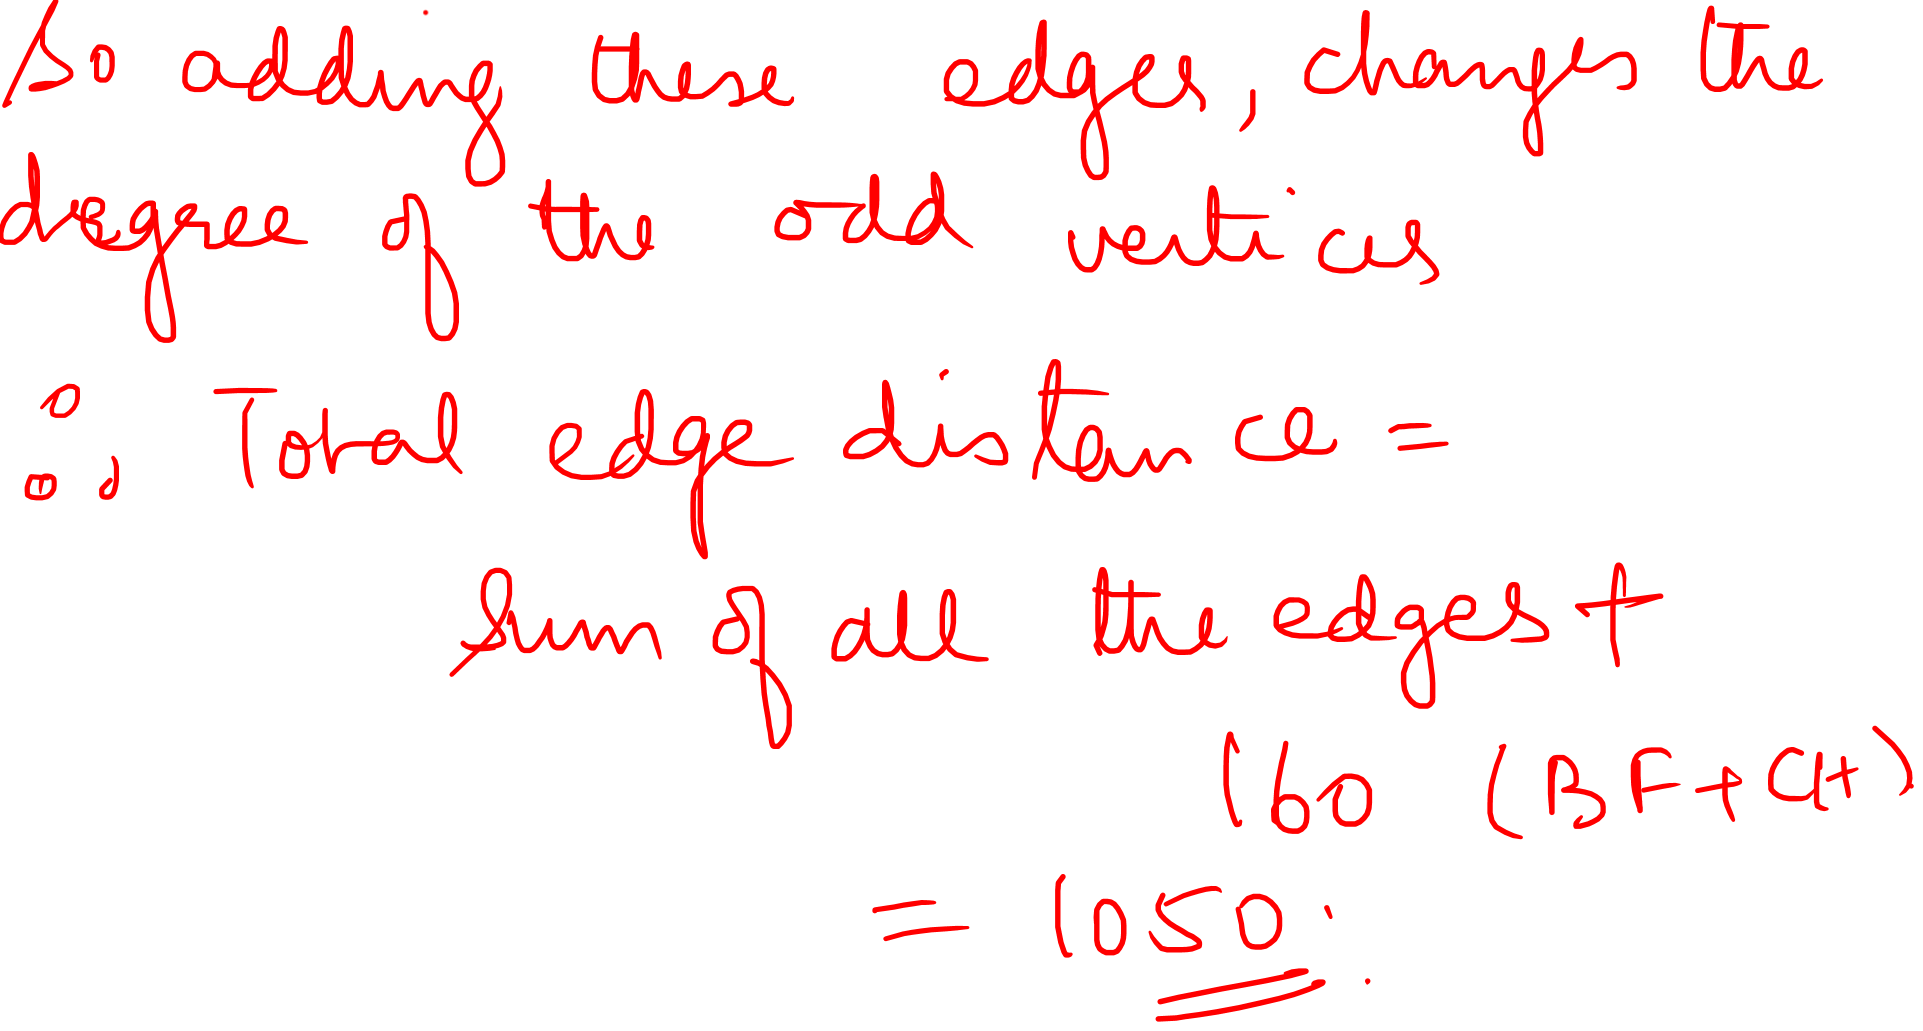 So adding these edges, changes the
degree of the odd vertices
∴, Total edge distance =
Sum of all the edges +
160 (BF+CH)
= 1050.